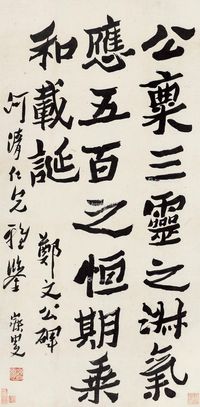 公稟三靈之淑氣
應五百之恒期乘
和載誕
鄭文公碑
河清仁兄雅鑒